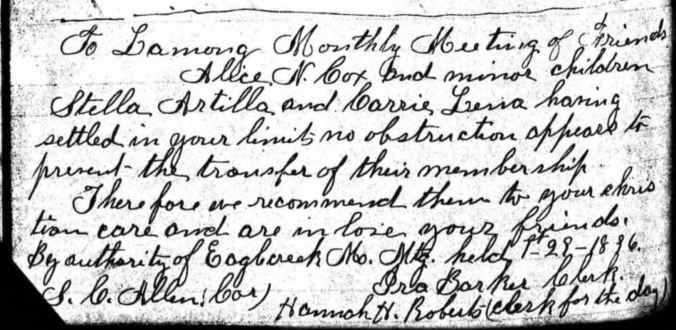 To Lamong Monthly Meeting of Friends
Alice N. Cox and minor children
Stella Artilla and Carrie Lena having
settled in your limits no obstruction appears to
prevent the transfer of their membership.
Therefore we recommend them to your chris
tian care and are in love your friends.
By authority of Eagbcreek Mo. Mtg. held 1st-29-1896.
S. C. Allen: Cor) Ira Barker Clerk.
Hannah H. Roberts (clerk for the day)